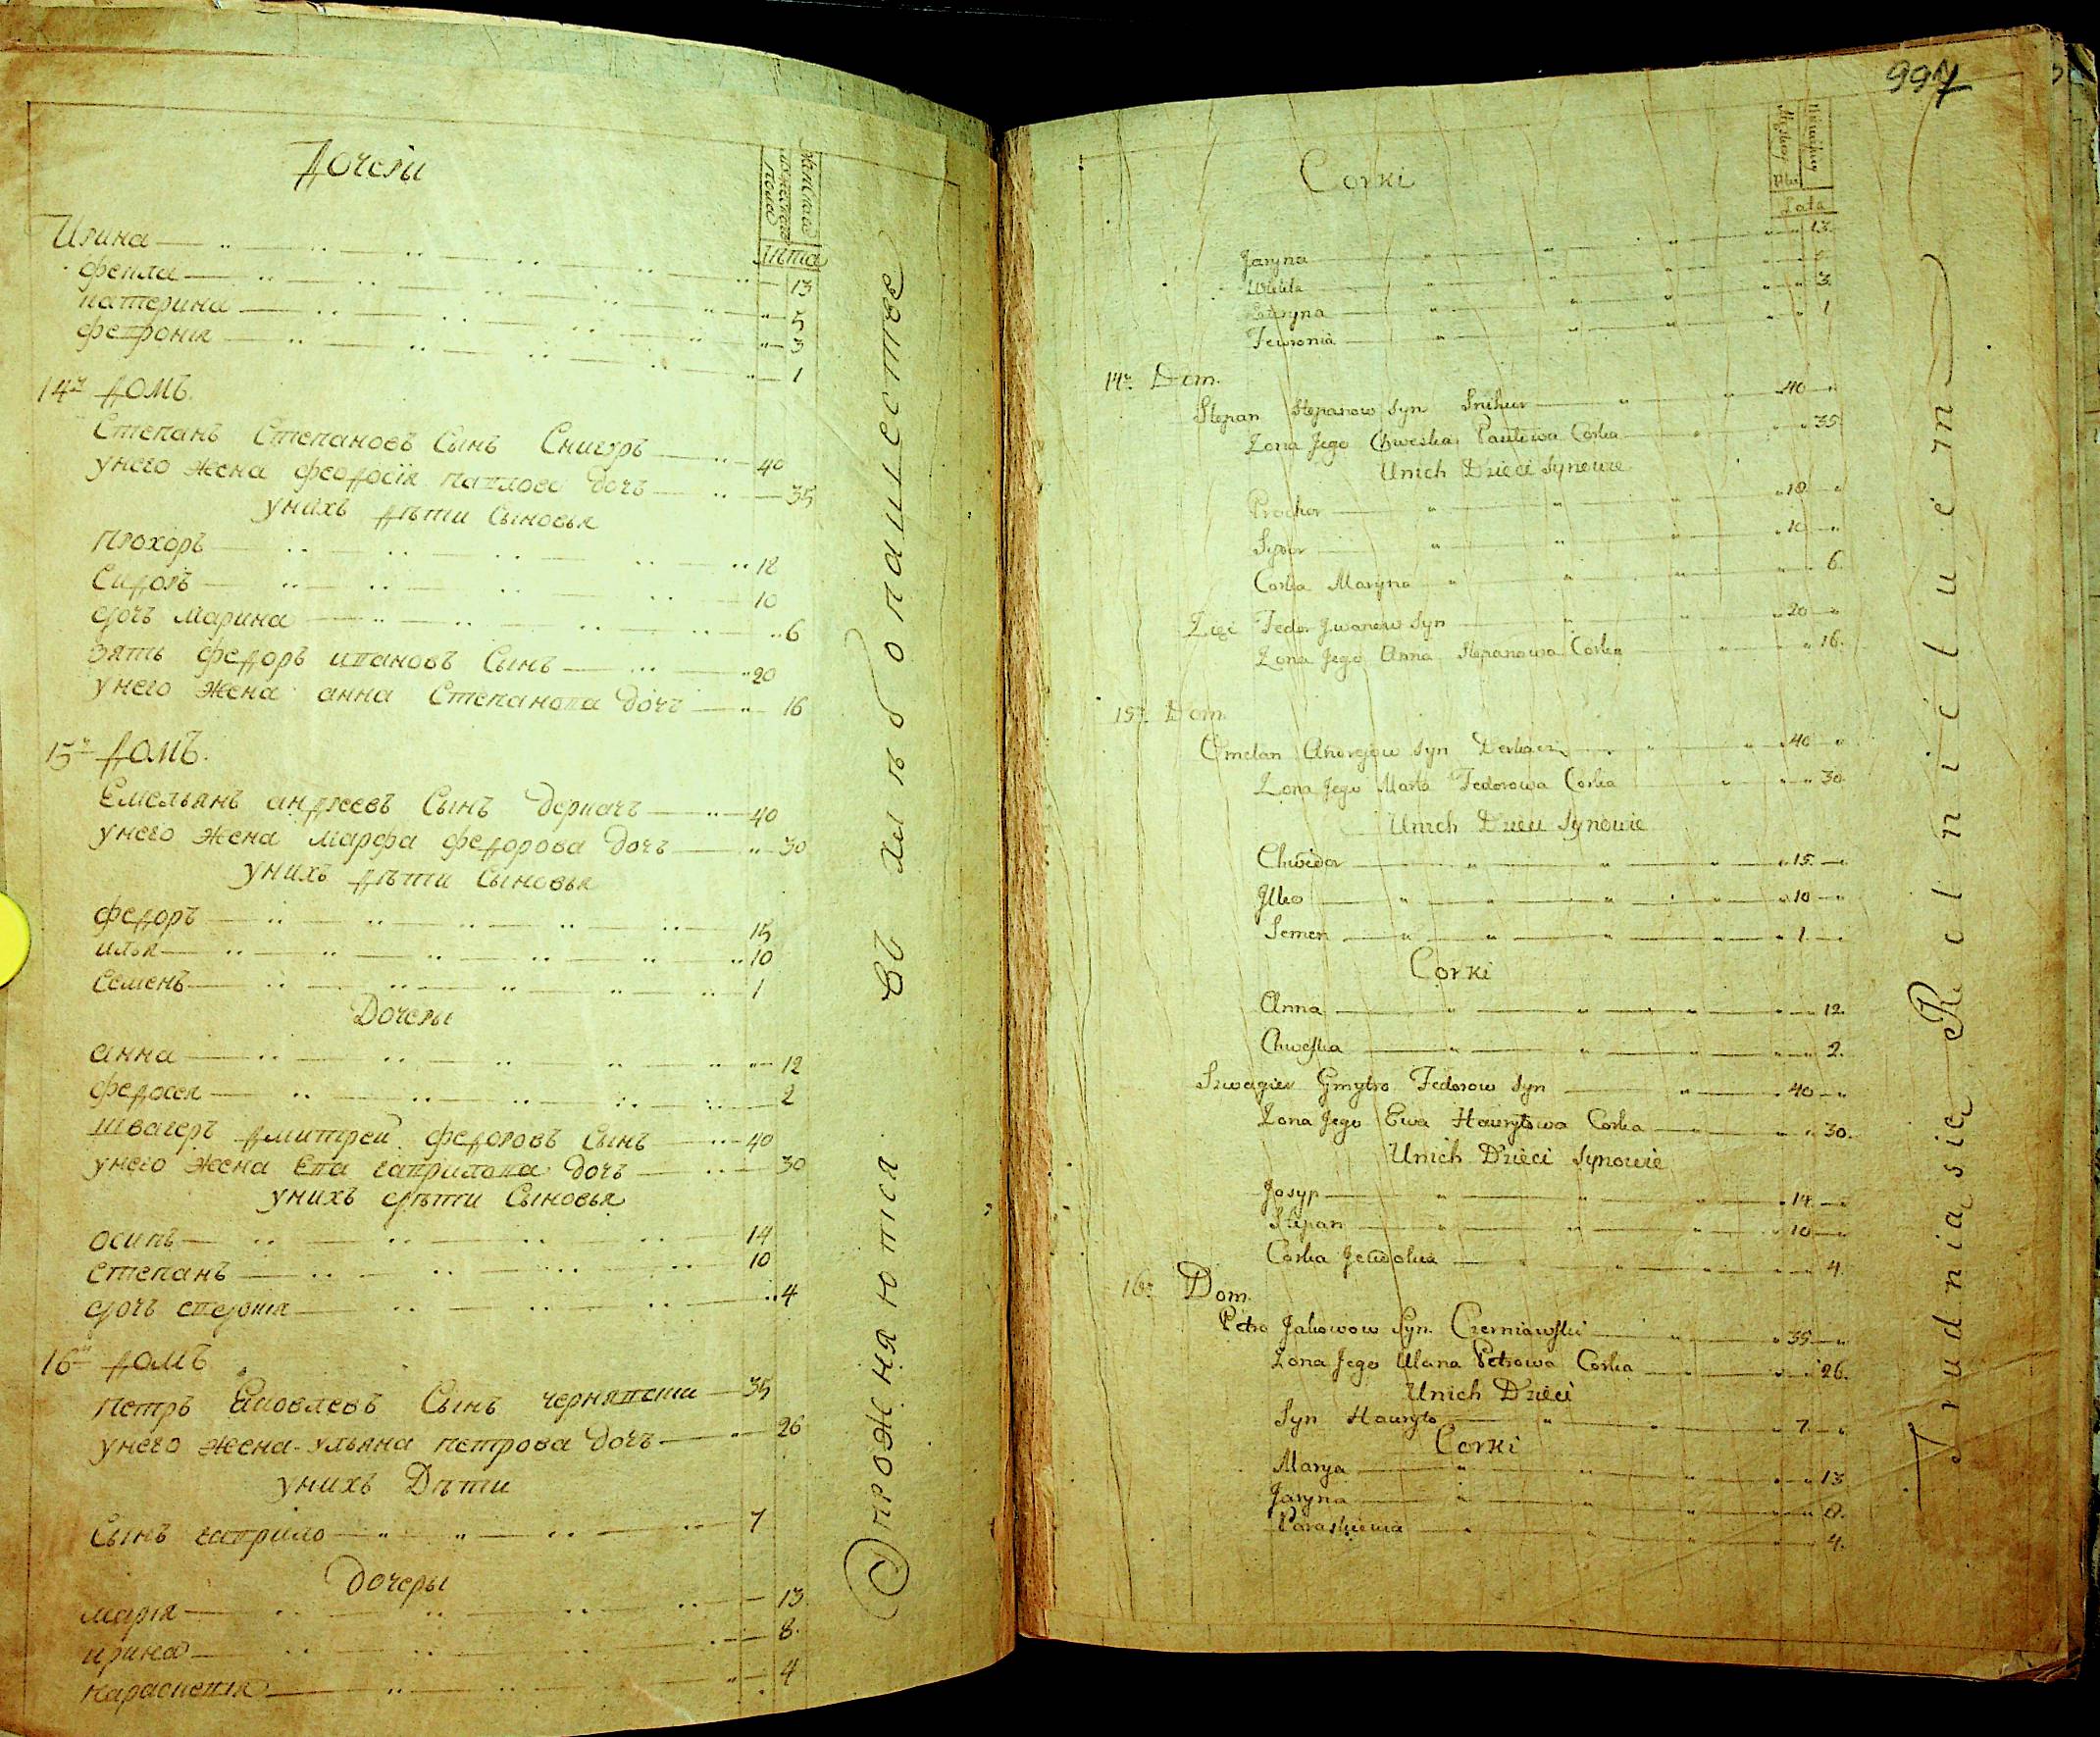 Дочери
мужеска пола
женскаго
Лѣта
Ирина 13
фекла 5
катерина 3
феѵронія 1
14й Домъ.
Степанъ Степановъ Сынъ Снигуръ 40
унего жена феодосія павлова дочъ 35
унихъ дѣти Сыновья
прохоръ 12
Сидоръ 10
дочъ марина 6
зять федоръ ивановъ Сынъ 20
унего жена анна Степанова дочъ 16
15й Домъ.
Емельянъ андреевъ Сынъ деркачъ 40
унего жена марфа федорова дочъ 30
унихъ дѣти Сыновья
федоръ 15
илья 10
Семенъ 1
Дочеры
анна 12
федосея 2
швагеръ дмитрей федоровъ Сынъ 40
унего жена Ева гаврилова дочъ 30
унихъ дѣти Сыновья
осипъ 14
степанъ 10
дочъ 4
16й домъ
петръ Яковлевъ Сынъ чернявски 35
унего жена ульяна петрова дочъ 26
унихъ Дѣти
Сынъ гаврило 7
дочеры
марія 13
ирина 8
параскевія 4
Упрожняются въ хлѣбопашестве
997
Corki
Lata
Jaryna 13
Wekla
Kataryna 3
Fewronia 1
14. Dom.
Stepan Stepanow Syn Snihur 40
Zona Jego Chweska Pawlowa Corka 35
Unich Dzieci Synowie
Prochor 18
Sydor 10
Corka Maryna 6
Zięć Fedor Jwanow Syn 20
Zona Jego Anna Stepanowa Corka 16
15. Dom.
Omelan Andrejow Syn Derkacz 40
Zona Jego Marta Fedorowa Corka 30
Unich Dzieci Synowie
Chwedor 15
Jlko 10
Semen 1
Corki
Anna 12
Chweska 2
Szwagier Gmytro Fedorow Syn 40
Zona Jego Ewa Hawryłowa Corka 30
Unich Dzieci Synowie
Josyp 14
Stepan 10
Corka Jewdokia 4
16. Dom.
Petro Jakowow Syn Czerniawski 35
Zona Jego Ulana Petrowa Corka 26
Unich Dzieci
Syn Hawryło 7
Corki
Marya 13
Jaryna 8
Paraskiewia 4
Trudnia się Rolnictwem